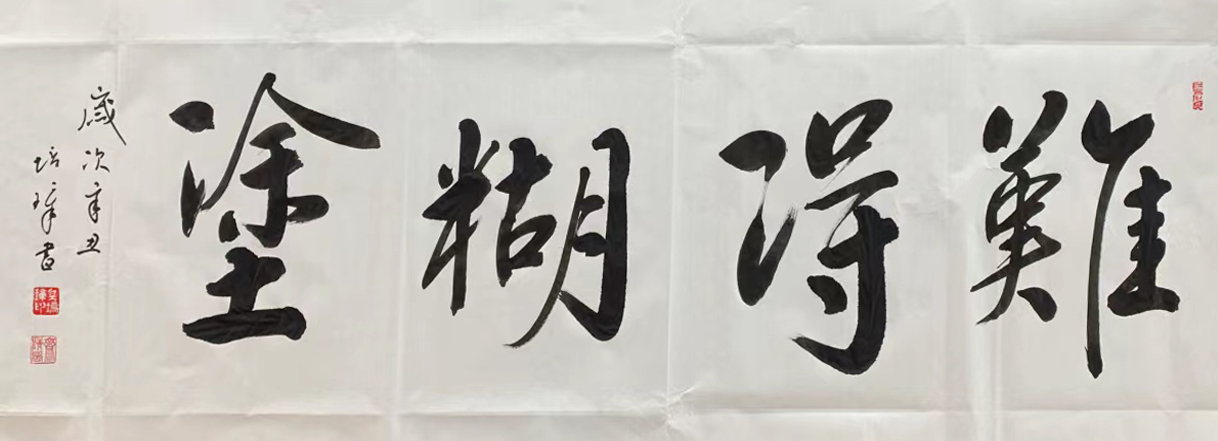 難得糊塗
歲次辛丑
培璋書